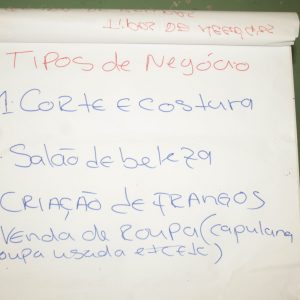 Tipos de Negócio
1. Corte e costura
. Salão de beleza
Criação de Frangos
Venda de Roupa (capulana,
oupa usada e